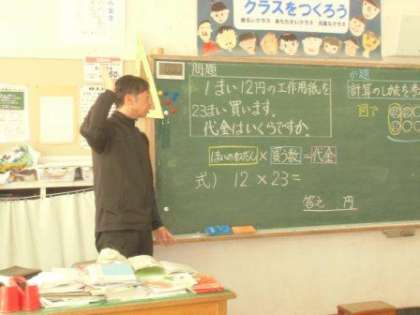 クラスをつくろう
問題
1まい12円の工作用紙を
23まい買います。
代金はいくらですか。
1まいのねだん×買う数=代金
式) 12×23=
答え 円
計算のしかたを考
図で